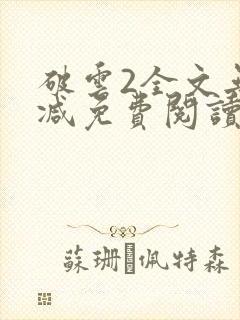 破雲2全文無
減免費閱讀
蘇珊�佩特森